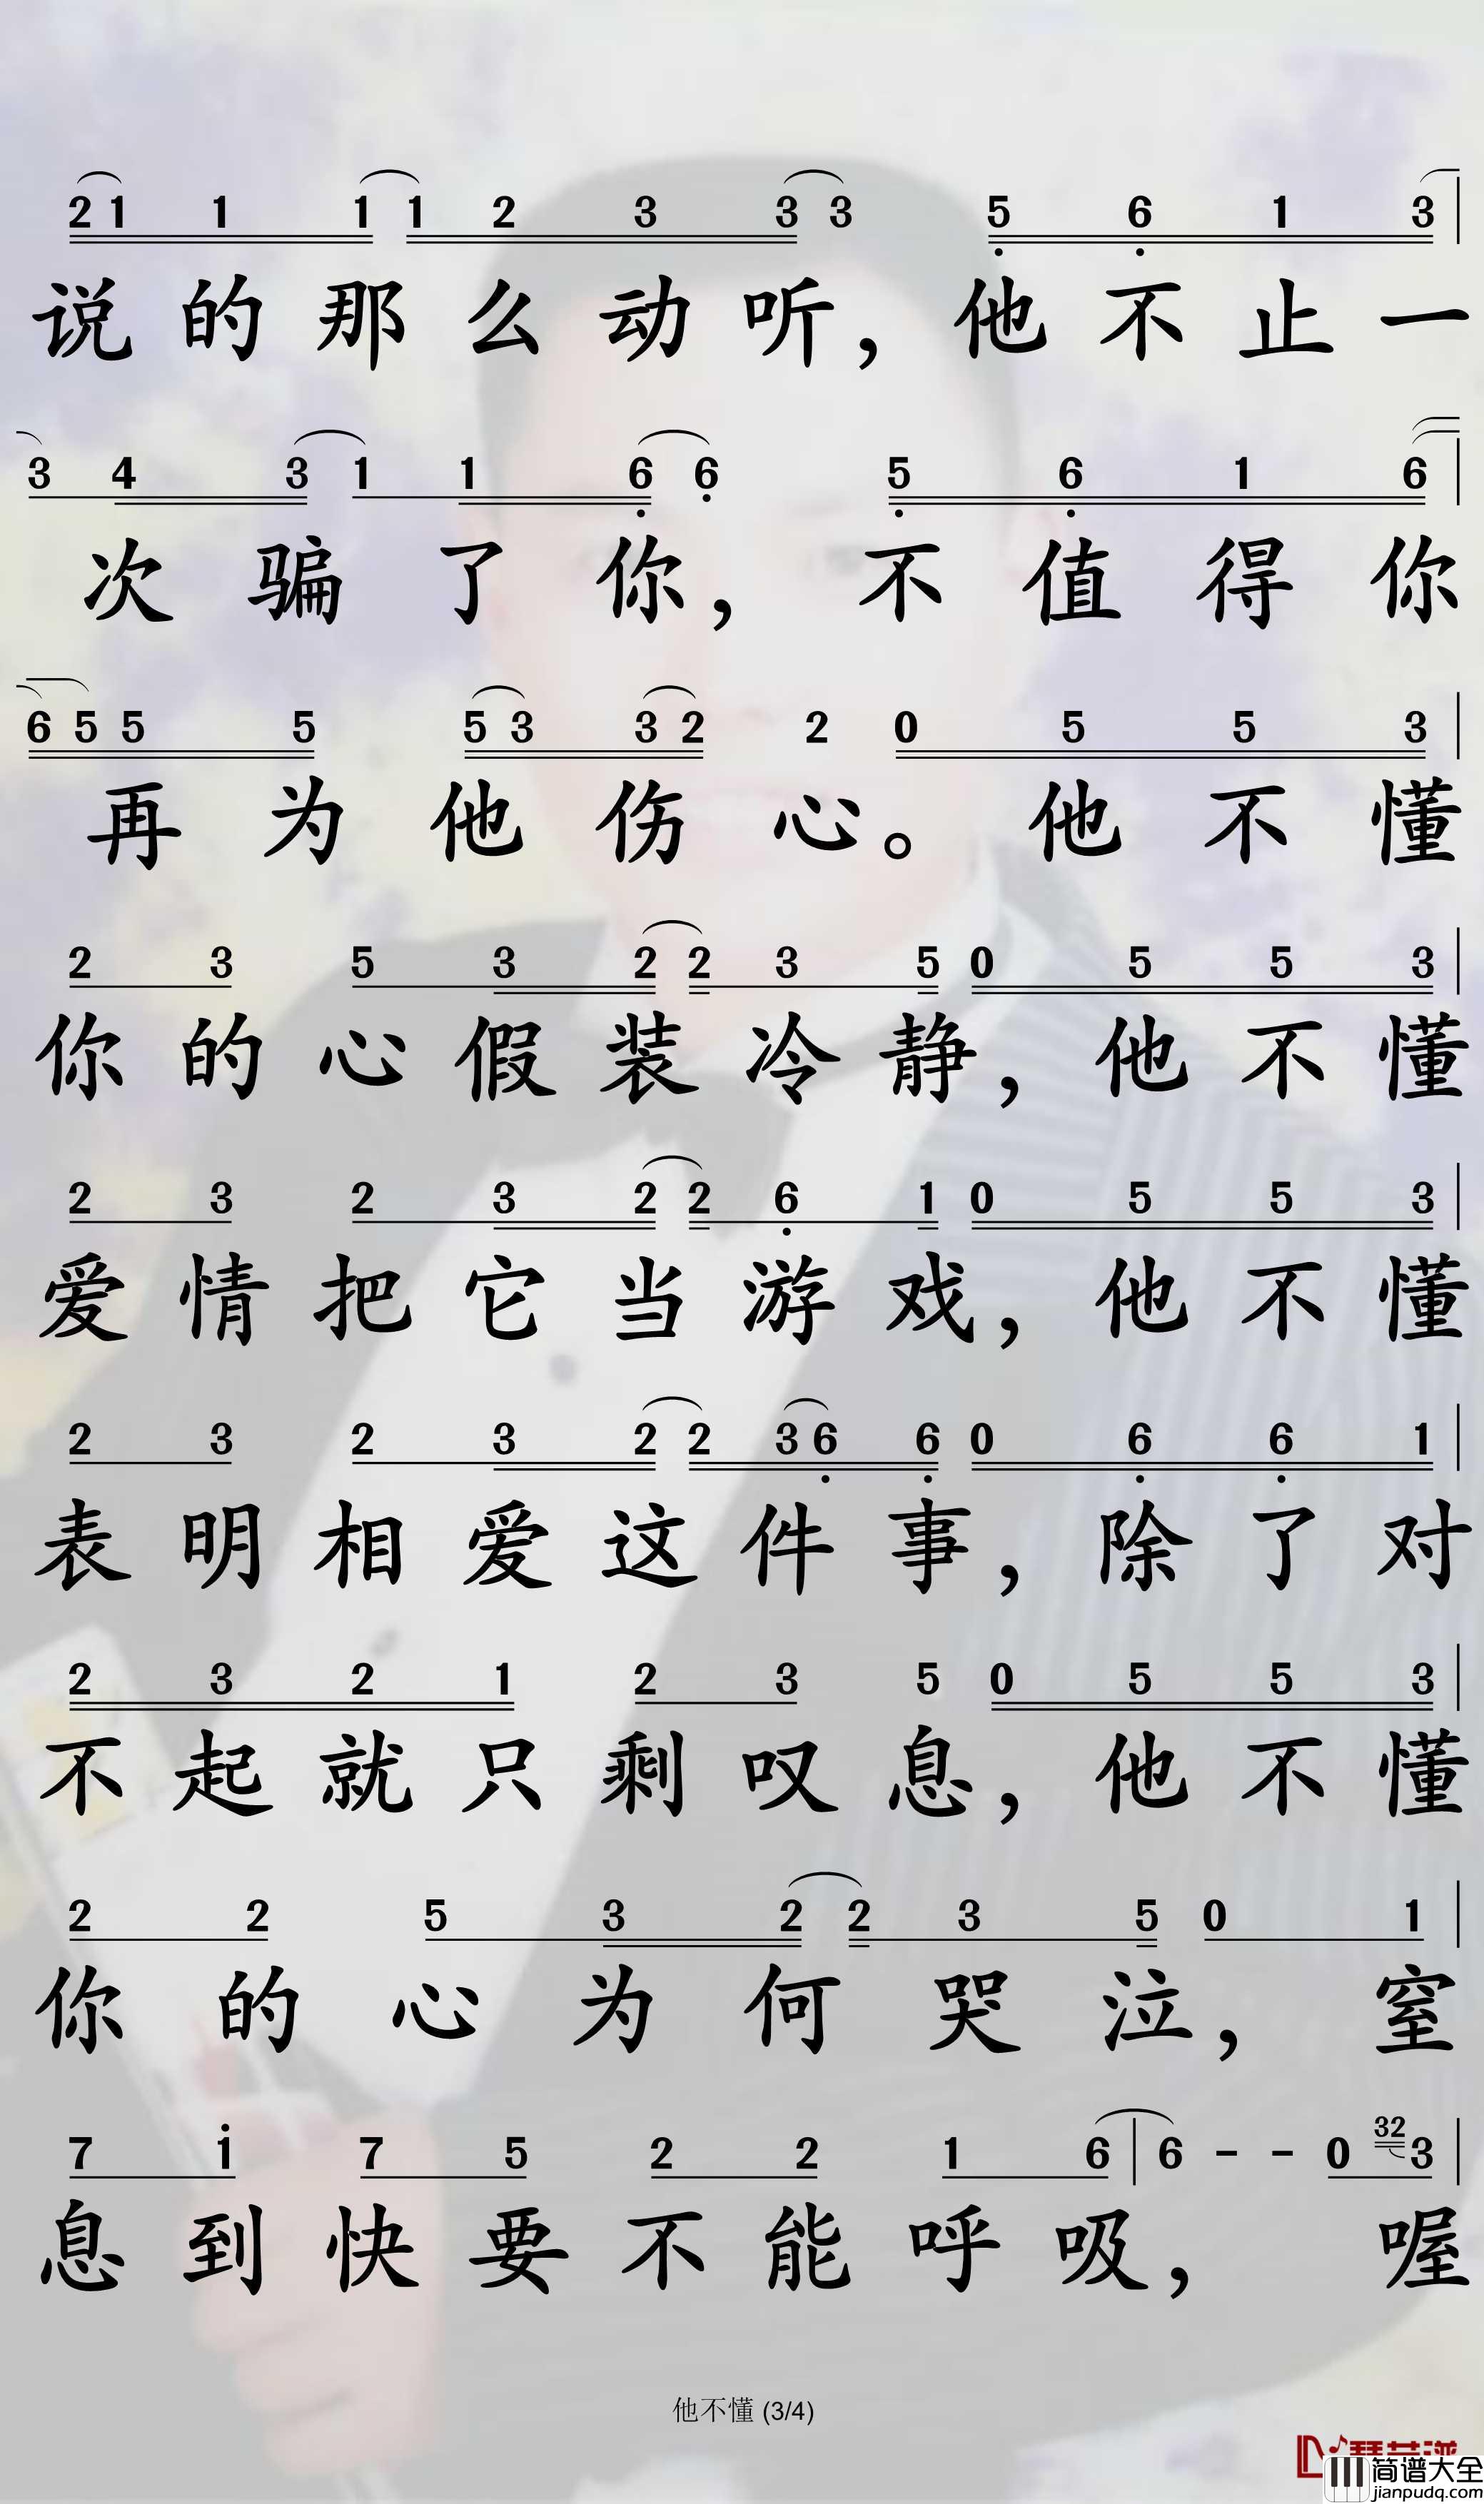 2 1 1 1 1 2 3 3 3 5 6 1 3
说的那么动听，他不止一
3 4 3 1 1 6 6 5 6 1 6
次骗了你，不值得你
6 5 5 5 5 3 3 2 2 0 5 5 3
再为他伤心。他不懂
2 3 5 3 2 2 3 5 0 5 5 3
你的心假装冷静，他不懂
2 3 2 3 2 2 6 1 0 5 5 3
爱情把它当游戏，他不懂
2 3 2 3 2 2 3 6 6 0 6 6 1
表明相爱这件事，除了对
2 3 2 1 2 3 5 0 5 5 3
不起就只剩叹息，他不懂
2 2 5 3 2 2 3 5 0 1
你的心为何哭泣，窒
7 1 7 5 2 2 1 6 | 6 - - 0 32 3
息到快要不能呼吸，喔
他不懂 (3/4)
简谱大全
jianpudq.com